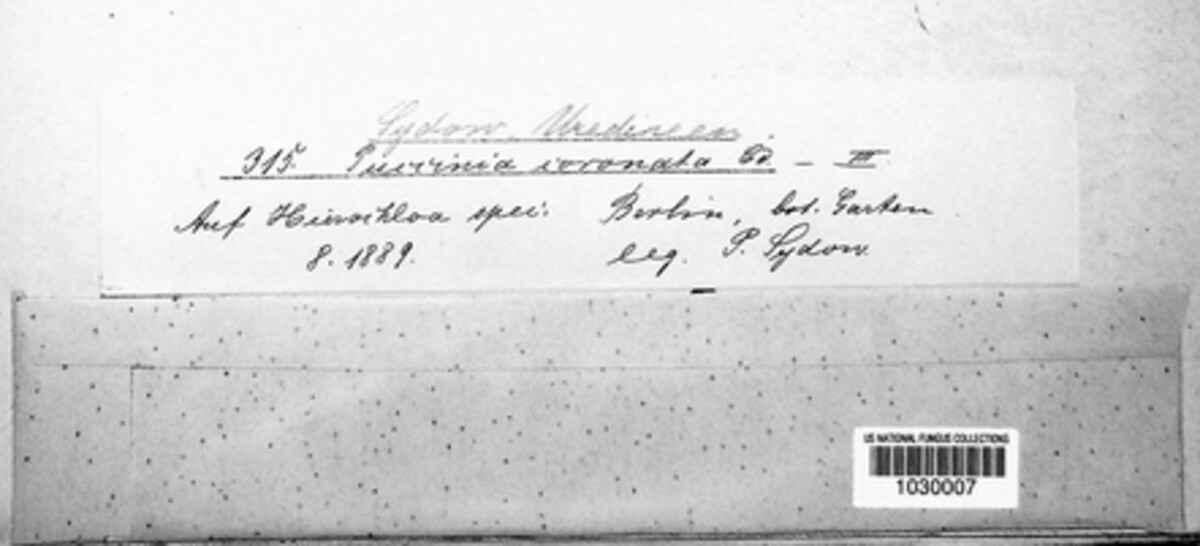 Sydow, Uredineen.
315. Puccinia coronata Cd. – III.
Auf Hierochloa spec. Berlin, bot. Garten
8. 1889. leg. P. Sydow.
US NATIONAL FUNGUS COLLECTIONS
1030007